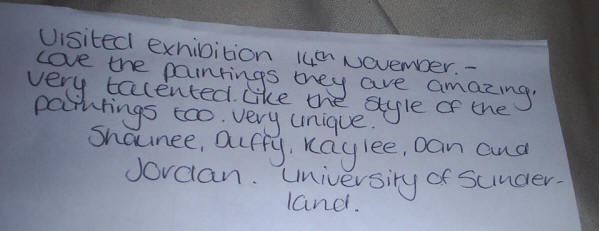 Visited exhibition 14th November. -
Love the paintings they are amazing,
very talented. Like the style of the
paintings too. very unique.
Shaunee, Duffy, Kaylee, Dan and
Jordan. University of Sunder-
land.